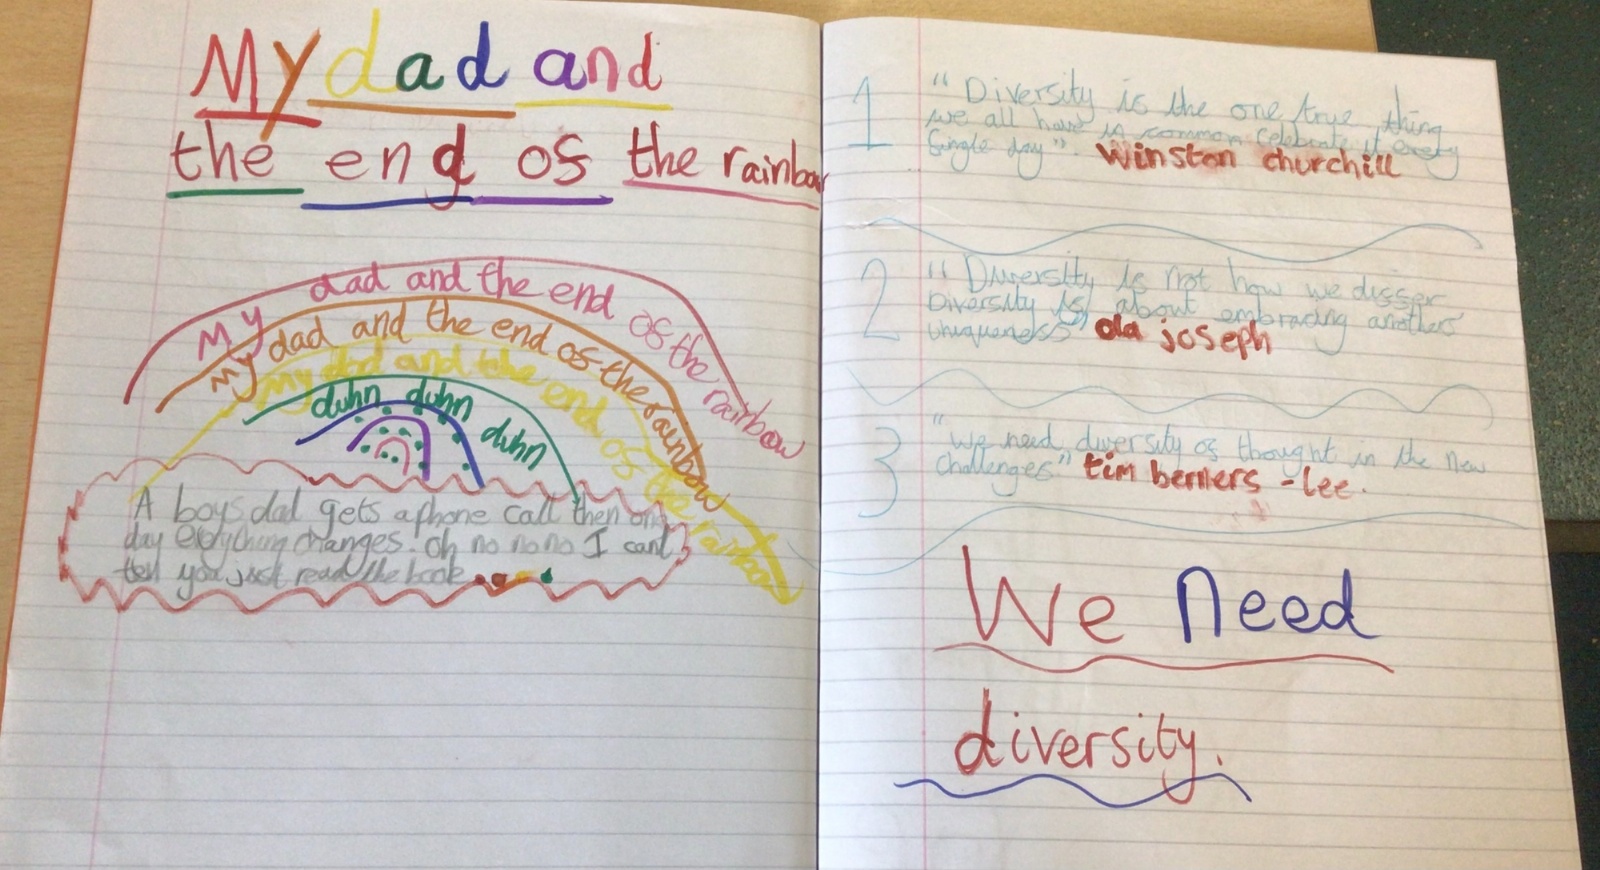 My dad and
the end os the rainbow
My dad and the end os the rainbow
My dad and the end os the rainbow
My dad and the end os the rainbow
duhn duhn duhn
A boys dad gets a phone call then one
day everything changes. Oh no no no I cant
tell you just read the book
1 "Diversity is the one true thing
we all have in common celebrate it every
single day". Winston churchill
2 "Diversity is not how we disser
Diversity is about embracing anothers
uniqueness" ola joseph
3 "We need diversity os thought in the new
challenges" tim berners-lee.
We need
diversity.